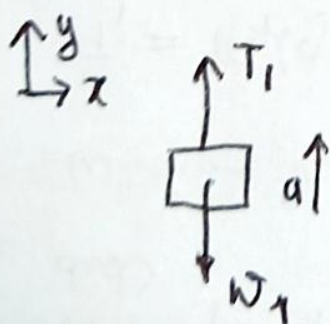 y
x
T₁
a
W₁